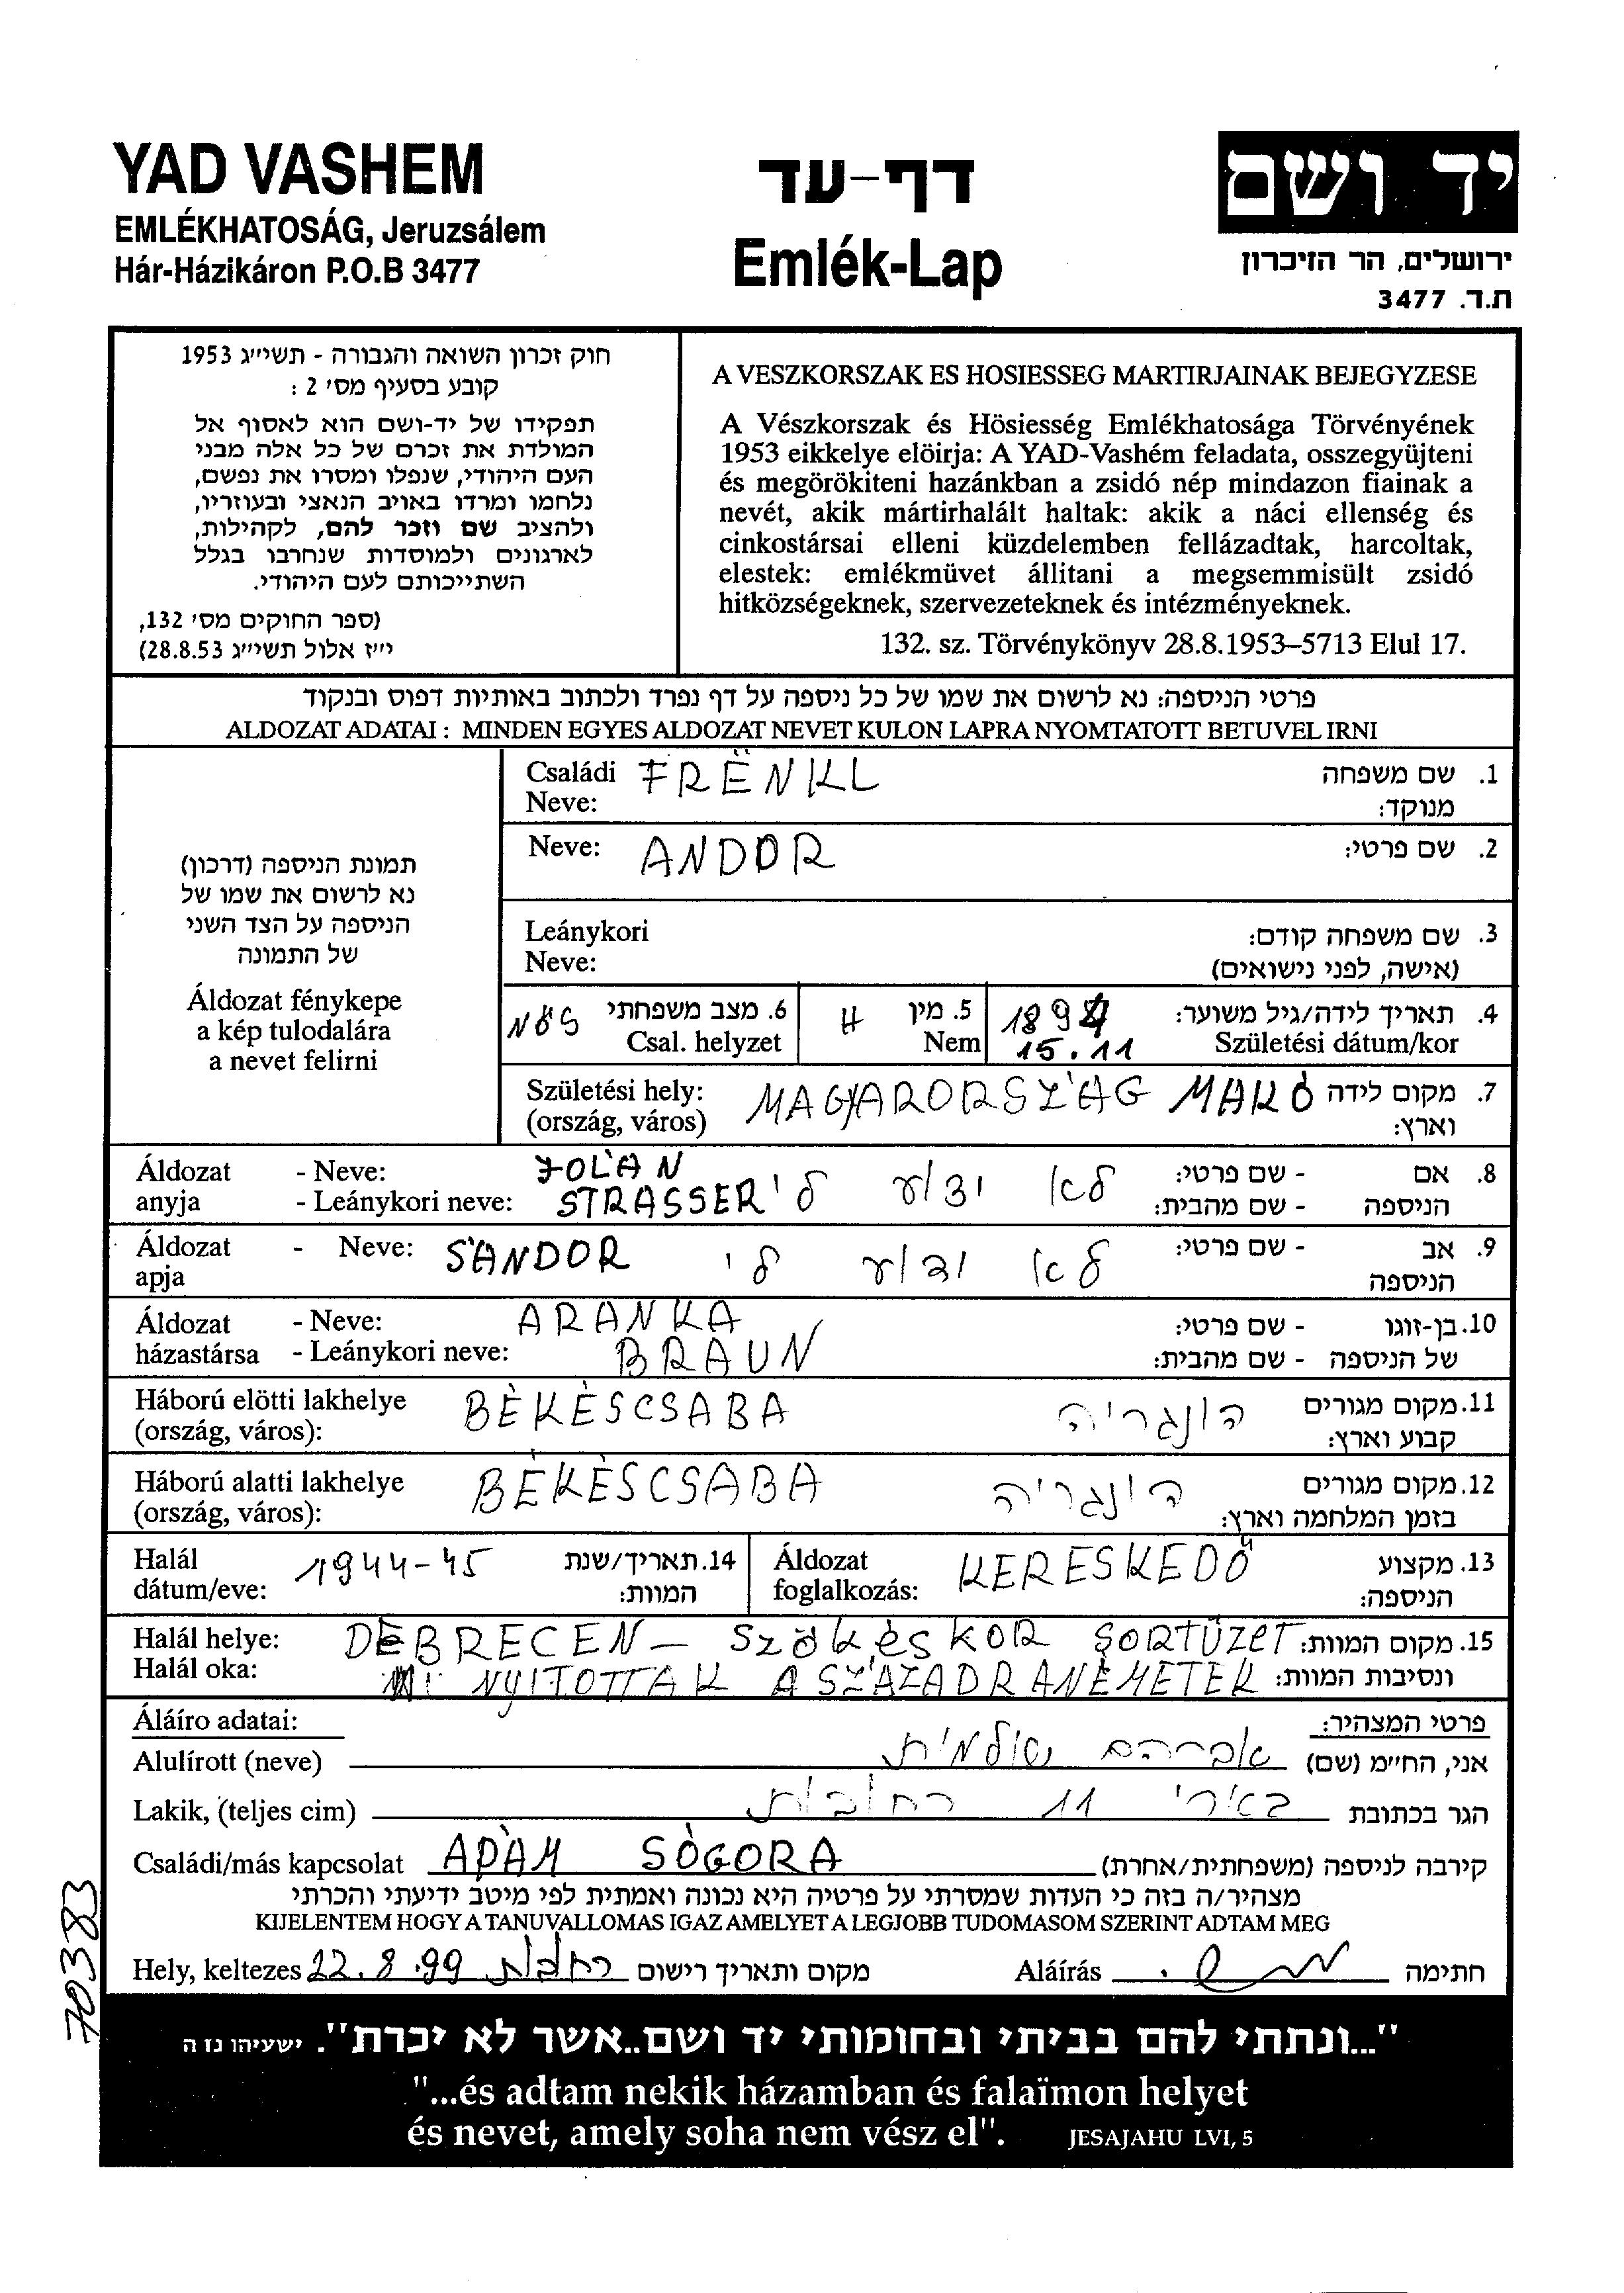 YAD VASHEM
EMLÉKHATOSÁG, Jeruzsálem
Hár-Házikáron P.O.B 3477
דף-עד
Emlék-Lap
יד ושם
ירושלים, הר הזיכרון
ת.ד. 3477
חוק זכרון השואה והגבורה - תשי״ג 1953
קובע בסעיף מס׳ 2 :
תפקידו של יד-ושם הוא לאסוף אל
המולדת את זכרם של כל אלה מבני
העם היהודי, שנפלו ומסרו את נפשם,
נלחמו ומרדו באויב הנאצי ובעוזריו,
ולהציב שם וזכר להם, לקהילות,
לארגונים ולמוסדות שנחרבו בגלל
השתייכותם לעם היהודי.
(ספר החוקים מס׳ 132,
י״ז אלול תשי״ג 28.8.53)
A VESZKORSZAK ES HOSIESSEG MARTIRJAINAK BEJEGYZESE
A Vészkorszak és Hösiesség Emlékhatosága Törvényének
1953 eikkelye elöirja: A YAD-Vashém feladata, osszegyüjteni
és megörökiteni hazánkban a zsidó nép mindazon fiainak a
nevét, akik mártirhalált haltak: akik a náci ellenség és
cinkostársai elleni küzdelemben fellázadtak, harcoltak,
elestek: emlékmüvet állitani a megsemmisült zsidó
hitközségeknek, szervezeteknek és intézményeknek.
132. sz. Törvénykönyv 28.8.1953–5713 Elul 17.
פרטי הניספה: נא לרשום את שמו של כל ניספה על דף נפרד ולכתוב באותיות דפוס ובנקוד
ALDOZAT ADATAI : MINDEN EGYES ALDOZAT NEVET KULON LAPRA NYOMTATOTT BETUVEL IRNI
תמונת הניספה (דרכון)
נא לרשום את שמו של
הניספה על הצד השני
של התמונה
Áldozat fénykepe
a kép tulodalára
a nevet felirni
Családi FRËNKL 1. שם משפחה
Neve: מנוקד:
Neve: ANDOR 2. שם פרטי:
Leánykori 3. שם משפחה קודם:
Neve: (אישה, לפני נישואים)
NŐS 6. מצב משפחתי H 5. מין 4. תאריך לידה/גיל משוער:
Csal. helyzet Nem 15.11 Születési dátum/kor
Születési hely: MAGYARORSZÁG MAKÓ 7. מקום לידה
(ország, város) וארץ:
Áldozat - Neve: JOLÁN 8. אם - שם פרטי:
anyja - Leánykori neve: STRASSER לא ידוע לי הניספה - שם מהבית:
Áldozat - Neve: SÁNDOR לא ידוע לי 9. אב - שם פרטי:
apja הניספה
Áldozat - Neve: ARANKA 10. בן-זוגו - שם פרטי:
házastársa - Leánykori neve: BRAUN של הניספה - שם מהבית:
Háború elötti lakhelye BÈKÈSCSABA הונגריה 11. מקום מגורים
(ország, város): קבוע וארץ:
Háború alatti lakhelye BÈKÈSCSABA הונגריה 12. מקום מגורים
(ország, város): בזמן המלחמה וארץ:
Halál 1944-45 14. תאריך/שנת Áldozat KERESKEDŐ 13. מקצוע
dátum/eve: המוות: foglalkozás: הניספה:
Halál helye: DEBRECEN – SZÖKÉSKOR SORTÜZET 15. מקום המוות:
Halál oka: NYITOTTAK A SZÁZADRA NÉMETEK ונסיבות המוות:
Áláíro adatai: פרטי המצהיר:
Alulírott (neve) אברהם שולמית אני, החי״מ (שם)
Lakik, (teljes cim) בארי 11 רחובות הגר בכתובת
Családi/más kapcsolat APÁM SÓGORA קירבה לניספה (משפחתית/אחרת)
מצהיר/ה בזה כי העדות שמסרתי על פרטיה היא נכונה ואמתית לפי מיטב ידיעתי והכרתי
KIJELENTEM HOGY A TANUVALLOMAS IGAZ AMELYET A LEGJOBB TUDOMASOM SZERINT ADTAM MEG
Hely, keltezes 22.8.99 רחובות מקום ותאריך רישום Aláírás חתימה
70383
"...ונתתי להם בביתי ובחומותי יד ושם..אשר לא יכרת". ישעיהו נז ה
"...és adtam nekik házamban és falaïmon helyet
és nevet, amely soha nem vész el". JESAJAHU LVI, 5